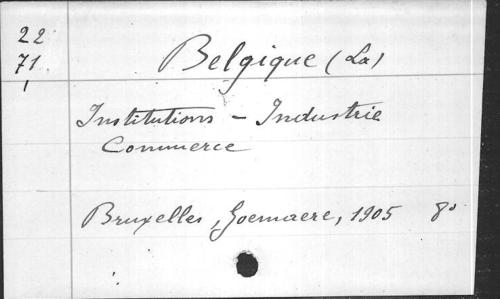 22
71
1
Belgique (La)
Institutions - Industrie
Commerce
Bruxelles, Goemaere, 1905 8º